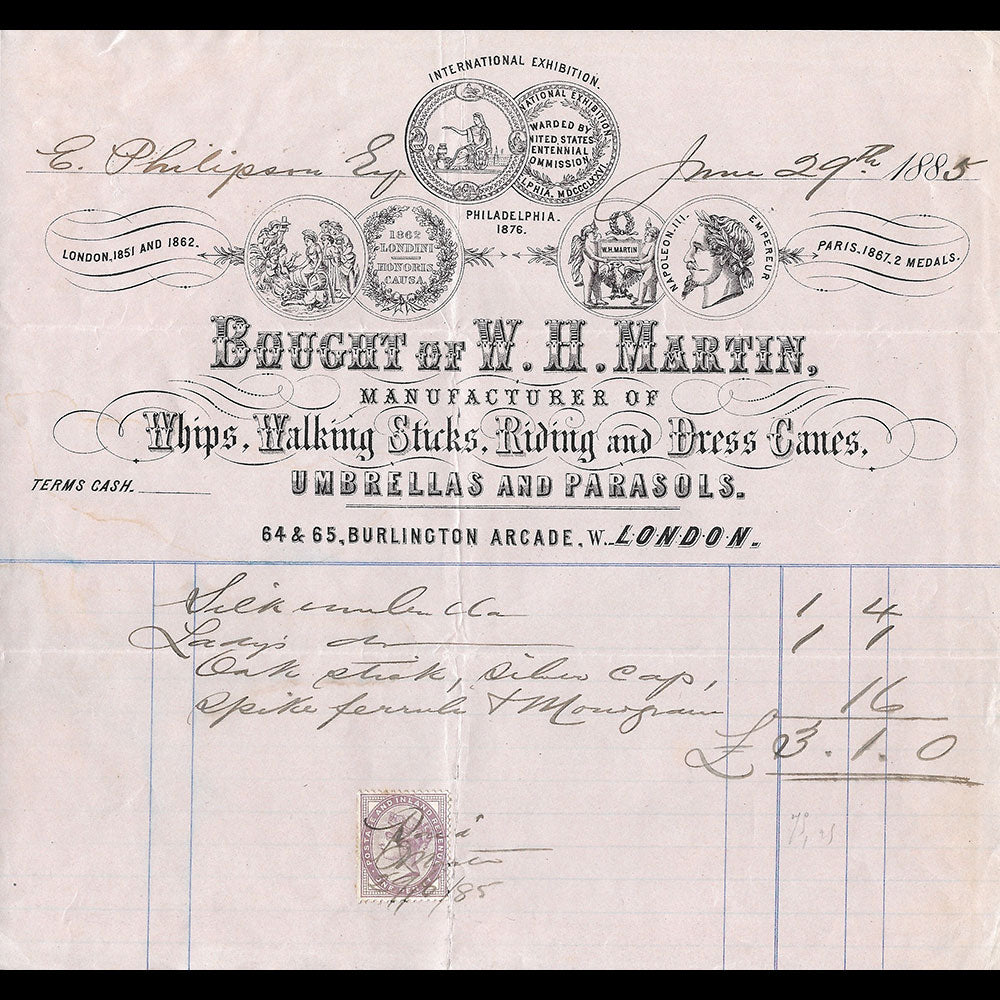 INTERNATIONAL EXHIBITION.
NATIONAL EXHIBITION
WARDED BY
NITED STATES
ENTENNIAL
OMMISSION
ELPHIA, MDCCCLXXVI.
E. Philipson Esq June 29th 1885
PHILADELPHIA.
1876.
LONDON, 1851 AND 1862.
1862
LONDINI
HONORIS
CAUSA
W.H. MARTIN
NAPOLEON.III. EMPEREUR
PARIS.1867.2 MEDALS.
BOUGHT OF W. H. MARTIN,
MANUFACTURER OF
Whips, Walking Sticks, Riding and Dress Canes,
UMBRELLAS AND PARASOLS.
TERMS CASH.
64 & 65, BURLINGTON ARCADE, W. LONDON.
Silk umbrella 1 4
Lady's do 1 1
Oak stick, silver cap,
spike ferrule & Monogram 16
£3.1.0
POSTAGE AND INLAND REVENUE
ONE PENNY
/85